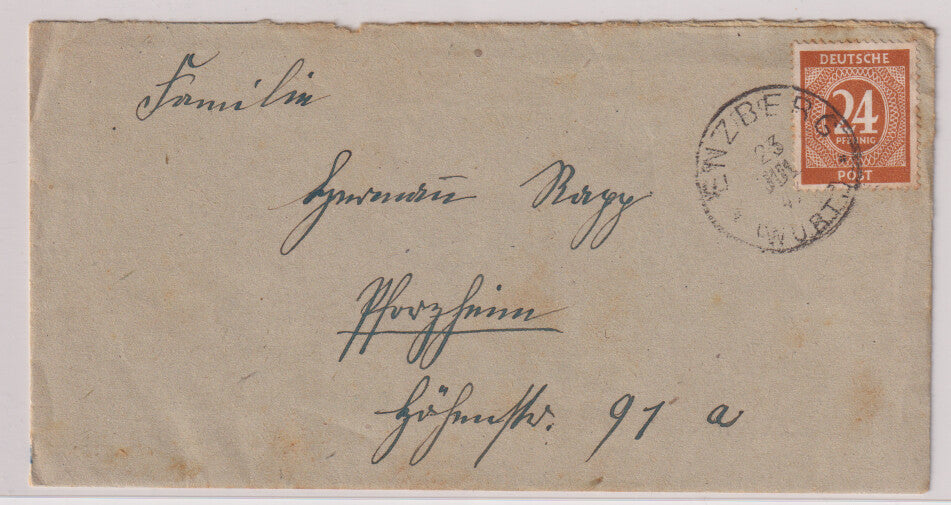 Familie
Hermann Rapp
Pforzheim
Höhenstr. 91 a
DEUTSCHE
24
PFENNIG
POST
ENZBERG
23
47
(WÜRTT)